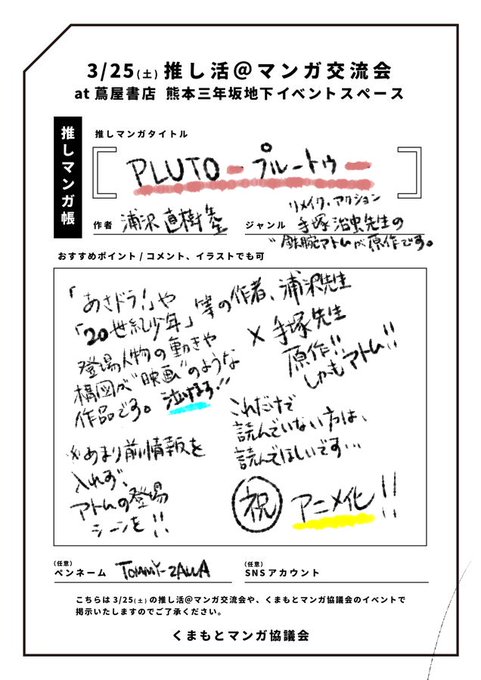 3/25(土)推し活@マンガ交流会
at 蔦屋書店 熊本三年坂地下イベントスペース
推しマンガ帳
推しマンガタイトル
PLUTO-プルートゥー
作者 浦沢直樹先生
ジャンル リメイク、アクション
手塚治虫先生の
"鉄腕アトム"が原作です。
おすすめポイント/コメント、イラストでも可
「あさドラ!」や
「20世紀少年」等の作者、浦沢先生
×手塚先生
原作!!
しかもアトム!!
登場人物の動きや
構図が"映画"のような
作品です。泣ける!!
これだけで
読んでいない方は、
読んでほしいです…
※あまり前情報を
入れず、
アトムの登場
シーンを!!
祝 アニメ化!!
(任意)
ペンネーム TOMMY-ZAWA
(任意)
SNSアカウント
こちらは3/25(土)の推し活@マンガ交流会や、くまもとマンガ協議会のイベントで
掲示いたしますのでご了承ください。
くまもとマンガ協議会